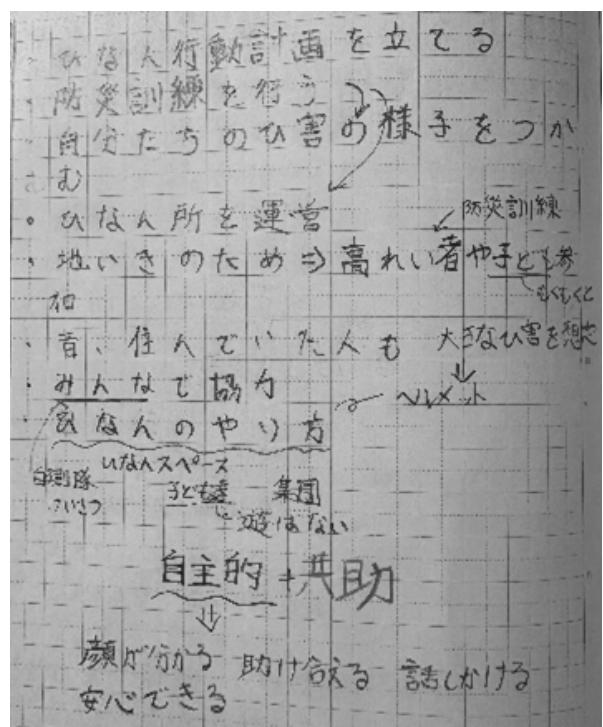 ・ひなん行動計画を立てる
・防災訓練を行う
・自分たちのひ害の様子をつか
む
・ひなん所を運営
防災訓練
・地いきのため⇒高れい者や子ども参
加
もくもくと
・昔、住んでいた人も
大きなひ害を想定
・みんなで協力
ヘルメット
・ひなんのやり方
ひなんスペース
自衛隊
子ども達
集団
遊ばない
自主的+共助
顔が分かる 助け合える 話しかける
安心できる